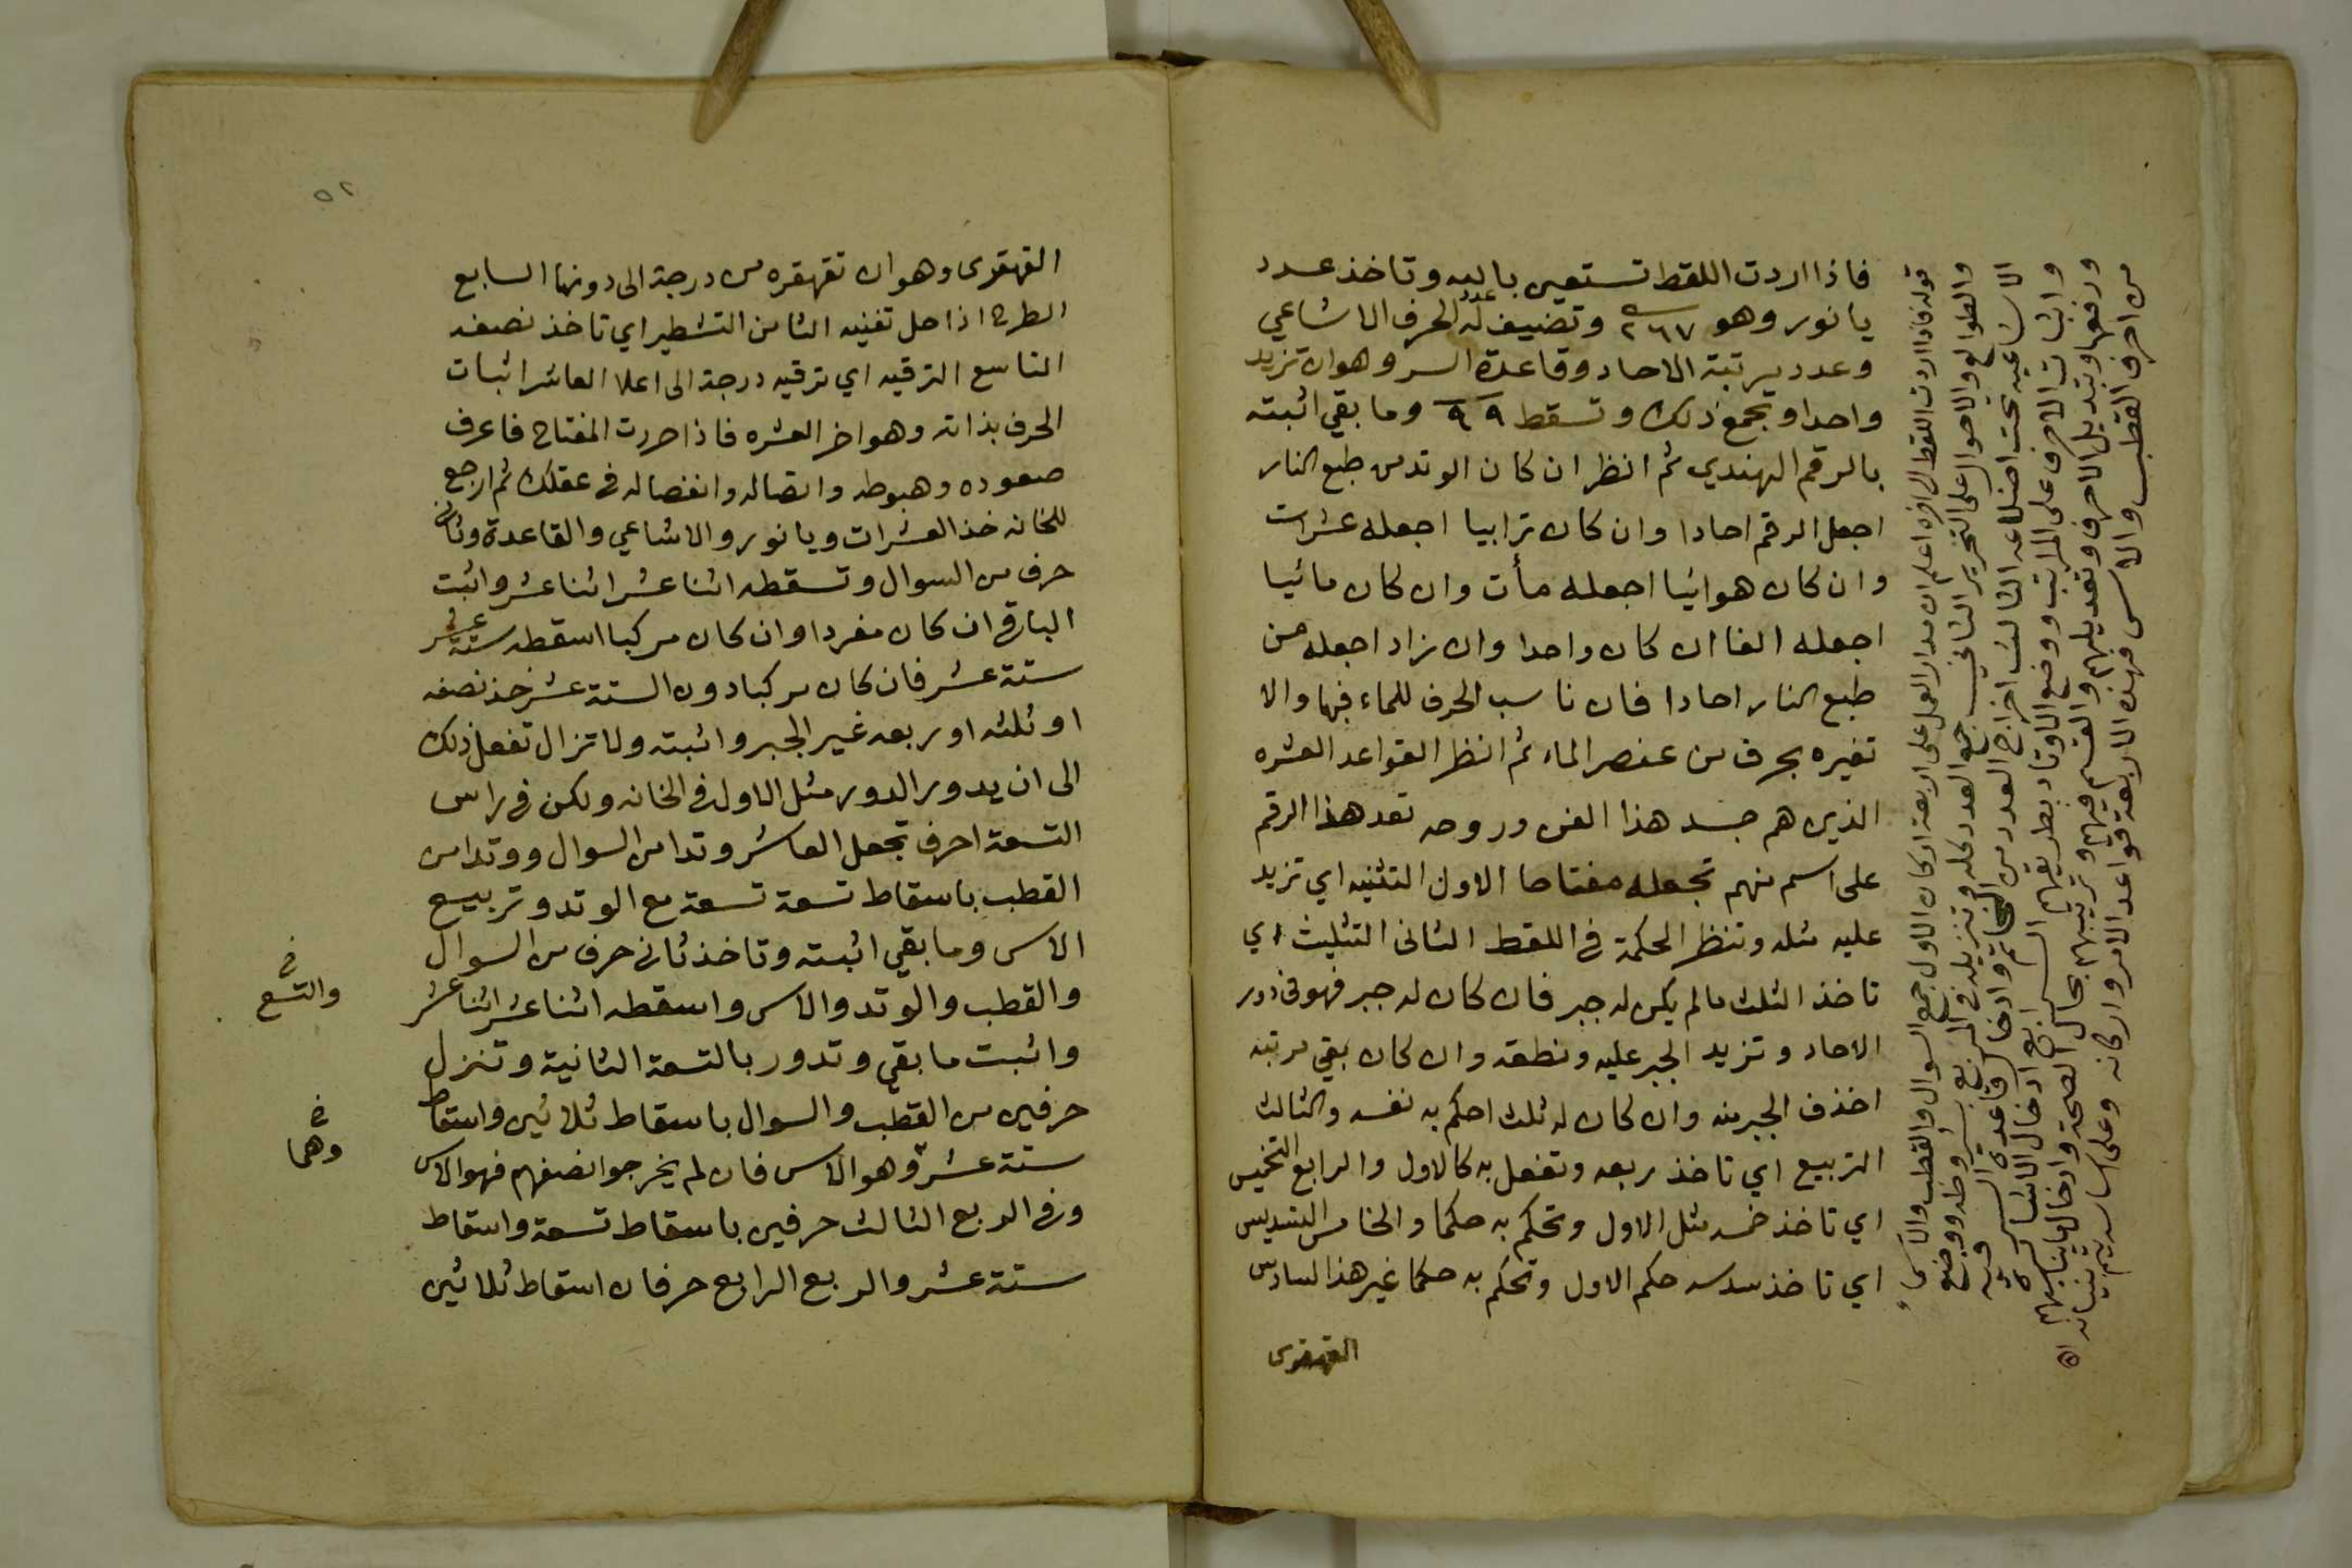 فاذا اردت اللقط تستعين بالله وتاخذ عدد
يا نور وهو ٢٦٧ وتضيف له عدد الحرف الاشاعي
وعدد مرتبة الاحاد وقاعدة السر وهو ان تزيد
واحدا وتجمع ذلك وتسقط ٩٩ وما بقي اثبته
بالرقم الهندي ثم انظر ان كان الوتد من طبع النار
اجعل الرقم احادا وان كان ترابيا اجعله عشرات
وان كان هوائيا اجعله مأت وان كان مائيا
اجعله الفا ان كان واحدا وان زاد اجعله من
طبع النار احادا فان ناسب الحرف للماء فبها والا
تغيره بحرف من عنصر الماء ثم انظر القواعد العشره
الذين هم جسد هذا الفن وروحه تعد هذا الرقم
على اسم منهم تجعله مفتاحا الاول التثنيه اي تزيد
عليه مثله وتنظر الحكمة في اللقط الثانى التثليث اي
تاخذ الثلث ما لم يكن له جبر فان كان له جبر فهو في دور
الاحاد وتزيد الجبر عليه ونطقه وان كان بقي مرتبه
احذف الجبر منه وان كان له ثلث احكم به نفسه والثالث
التربيع اي تاخذ ربعه وتفعل به كالاول والرابع التخميس
اي تاخذ خمسه مثل الاول وتحكم به حكما والخامس التسديس
اي تاخذ سدسه حكم الاول وتحكم به حكما غير هذا السادس
القهقرى
قوله فاذا اردت اللقط الى اخره اعلم ان مدار العمل على اربعة اركان الاول جمع السوال والقطب والاس
والطوالع والاحوال على التحرير الثاني جمع العدد كله وتنزيله في المربع بشروطه ووضع
الاشاعيه تحت اضلاعه الثالث اخراج العدد من الخاتم وادخال قاعدة السر فيه
واثبات الاحرف على المراتب ووضع الاوتاد بطريقهم الرابع ادخال الاشاعيه
ورفعها وتبديل الاحرف وتعديلهم والقسم فيهم وترتيبهم بحال الصحة وادخال ما يناسبهم
من احرف القطب والاس فهذه الاربعة قواعد الامر واركانه وعلى اساسه يتم بنيانه اه
٥٢
القهقرى وهو ان تقهقره من درجة الى دونها السابع
الطرح اذا حل تفنيه الثامن التشطير اي تاخذ نصفه
التاسع الترقيه اي ترقيه درجة الى اعلا العاشر اثبات
الحرف بذاته وهو اخر العشره فاذا حررت المفتاح فاعرف
صعوده وهبوطه واتصاله وانفصاله في عقلك ثم ارجع
للخانه خذ العشرات ويا نور والاشاعي والقاعدة وثانى
حرف من السوال وتسقطه اثنا عشر اثنا عشر واثبت
الباقي ان كان مفردا وان كان مركبا اسقطه ستة عشر
ستة عشر فان كان مركبا دون الستة عشر خذ نصفه
او ثلثه او ربعه غير الجبر واثبته ولا تزال تفعل ذلك
الى ان يدور الدور مثل الاول في الخانه ولكن في راس
التسعة احرف تجعل العاشر وتدا من السوال ووتدا من
القطب باسقاط تسعة تسعة مع الوتد وتربيع
الاس وما بقي اثبته وتاخذ ثانى حرف من السوال
والقطب والوتد والاس واسقطه اثنا عشر اثنا عشر
واثبت ما بقي وتدور بالتسعة الثانية وتنزل
حرفين من القطب والسوال باسقاط ثلاثين واسقاط
ستة عشر وهو الاس فان لم يخرجوا نصفهم فهو الاس
وفي الربع الثالث حرفين باسقاط تسعة واسقاط
ستة عشر والربع الرابع حرفان اسقاط ثلاثين
والتسع
وهما